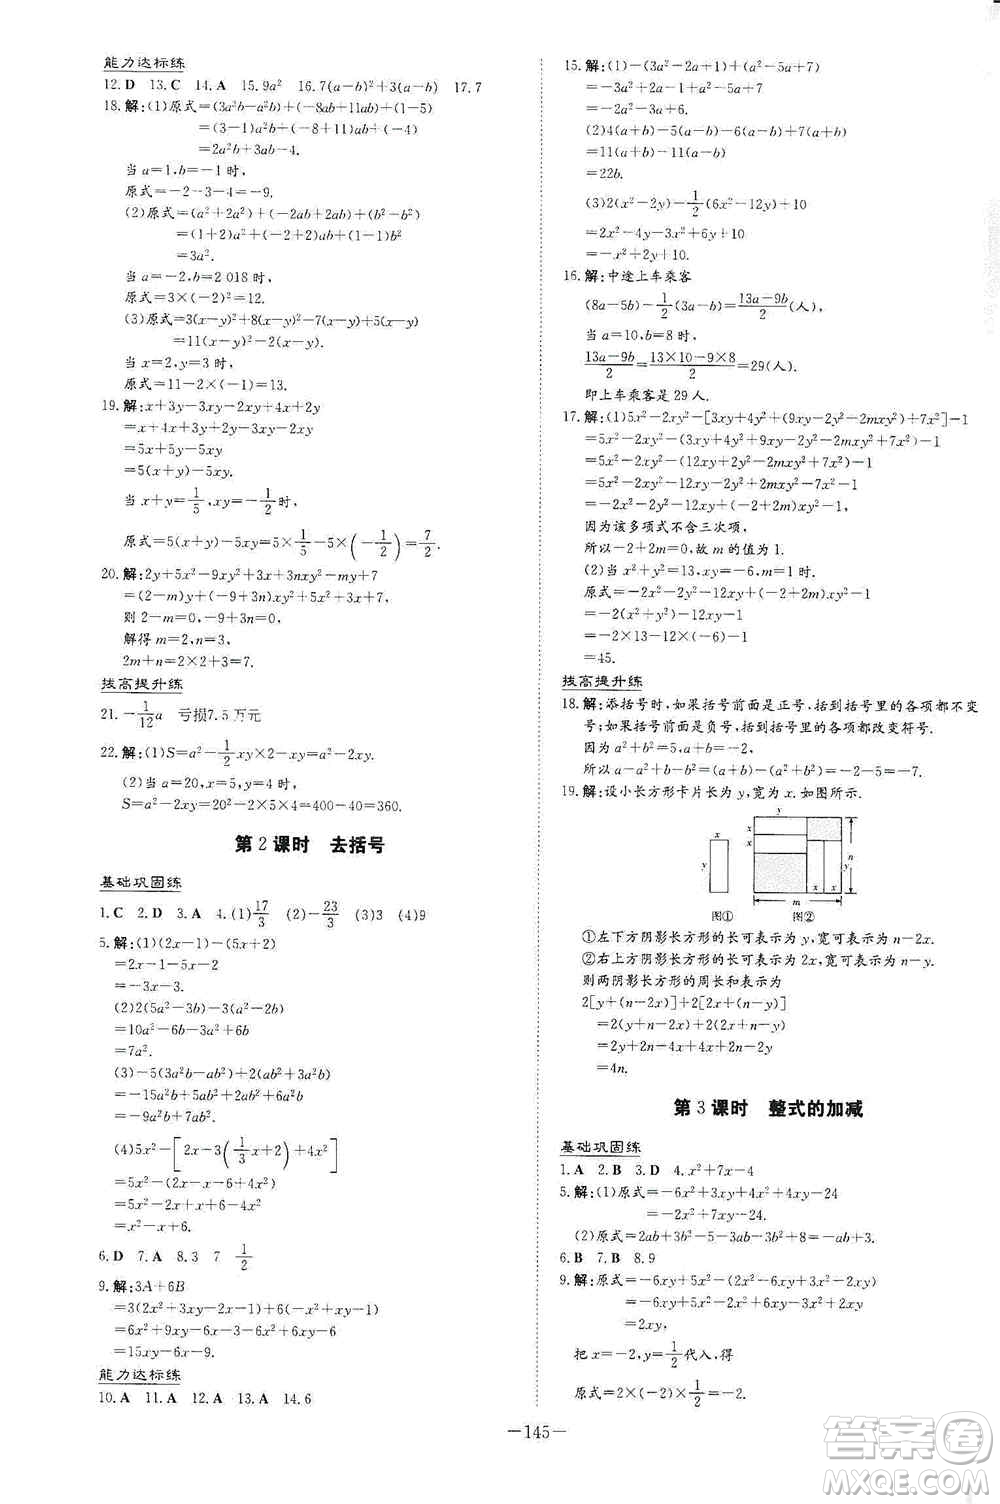 能力达标练
12.D 13.C 14.A 15.9a² 16.7(a-b)²+3(a-b) 17.7
18.解:(1)原式=(3a²b-a²b)+(-8ab+11ab)+(1-5)
=(3-1)a²b+(-8+11)ab+(-4)
=2a²b+3ab-4.
当 a=1,b=-1 时,
原式=-2-3-4=-9.
(2)原式=(a²+2a²)+(-2ab+2ab)+(b²-b²)
=(1+2)a²+(-2+2)ab+(1-1)b²
=3a².
当 a=-2,b=2 018 时,
原式=3×(-2)²=12.
(3)原式=3(x-y)²+8(x-y)²-7(x-y)-2(x-y)
=11(x-y)²-2(x-y).
当 x=2,y=3 时,
原式=11-2×(-1)=13.
19.解:x+3y-3xy-2xy+4x+2y
=x+4x+3y+2y-3xy-2xy
=5x+5y-5xy
=5(x+y)-5xy.
当 x+y=1/5,xy=-1/2时,
原式=5(x+y)-5xy=5×1/5-5×(-1/2)=7/2.
20.解:2y+5x²-9xy²+3x+3nxy²-my+7
则 2-m=0,-9+3n=0.
解得 m=2,n=3.
2m+n=2×2+3=7.
拔高提升练
21.-1/12 a 亏损7.5万元
22.解:(1)S=a²-1/2 xy×2=a²-xy.
(2)当 a=20,x=5,y=4 时,
S=a²-2xy=20²-2×5×4=400-40=360.
第 2 课时 去括号
基础巩固练
1.C 2.D 3.A 4.(1)17/3 (2)-23/3 (3)3 (4)9
5.解:(1)(2x-1)-(5x+2)
=2x-1-5x-2
=-3x-3.
(2)2(5a²-3b)-3(a²-2b)
=10a²-6b-3a²+6b
=7a².
(3)-5(3a²b-ab²)-3(ab²+2a²b)
=-15a²b+5ab²-3ab²-6a²b
=-21a²b+2ab².
(4)5x²-[2x-3(1/3 x+2)+4x²]
=5x²-(2x-x-6+4x²)
=5x²-2x+x+6-4x²
=x²-x+6.
6.D 7.A 8.3 7 1/2
9.解:3A+6B
=3(2x²+3xy-2x-1)+6(-x²+xy-1)
=6x²+9xy-6x-3-6x²+6xy-6
=15xy-6x-9.
能力达标练
10.A 11.A 12.A 13.A 14.6
15.解:(1)-(3a²-2a+1)+(2a²-5a+7)
=-3a²+2a-1+2a²-5a+7
=-a²-3a+6.
(2)4(a+b)-5(a-b)-6(a-b)+7(a+b)
=11(a+b)-11(a-b)
=22b.
(3)2(x²-2y)-1/2(6x²-12y)+10
=2x²-4y-3x²+6y+10
=-x²+2y+10.
16.解:中途上车乘客
(8a-5b)-1/2(3a-b)=13a-9b/2(人).
当 a=10,b=8 时,
13a-9b/2=13×10-9×8/2=29(人).
即上车乘客是 29 人.
17.解:(1)5x²-2xy²-[3xy+4y²+(9xy-2y²-2mxy²)+7x²]-1
=5x²-2xy²-(3xy+4y²+9xy-2y²-2mxy²+7x²)-1
=5x²-2xy²-12xy-2y²+2mxy²-7x²-1
=-2x²-2y²-12xy+(-2+2m)xy²-1.
因为该多项式不含三次项,
所以-2+2m=0,故 m 的值为 1.
(2)当 x²+y²=13,xy=-6 时,
原式=-2x²-2y²-12xy-1
=-2(x²+y²)-12xy-1
=-2×13-12×(-6)-1
=45.
拔高提升练
18.解:添括号时,如果括号前面是正号,括到括号里的各项都不变
号;如果括号前面是负号,括到括号里的各项都改变符号.
因为 a²+b²=5,1-b=-2,
所以-1+a²+b+b²=-(1-b)+(a²+b²)=-(-2)+5=7.
19.解:设小长方形卡片长为 y,宽为 x.如图所示.
y
x
x
y
x
n
y
x x
m
图① 图②
①左下方阴影长方形的长可表示为 y,宽可表示为 n-2x.
②右上方阴影长方形的长可表示为 2x,宽可表示为 n-y.
则两阴影长方形的周长和表示为
2[y+(n-2x)]+2[2x+(n-y)]
=2(y+n-2x)+2(2x+n-y)
=2y+2n-4x+4x+2n-2y
=4n.
第 3 课时 整式的加减
基础巩固练
1.A 2.B 3.D 4.x²+7x-4
5.解:(1)原式=-6x²+3xy+4x²+4xy-24
=-2x²+7xy-24.
(2)原式=2ab+3b²-5-3ab-3b²+8=-ab+3.
6.B 7.B 8.9
9.解:原式=-6xy+5xy-2(-2xy-6xy+xy)+8xy
=-6xy+5xy+4xy-3xy
把 x=-2,y=1/2代入,得
原式=2×(-2)×1/2=-2.
-145-
答案圈
MXQE.COM